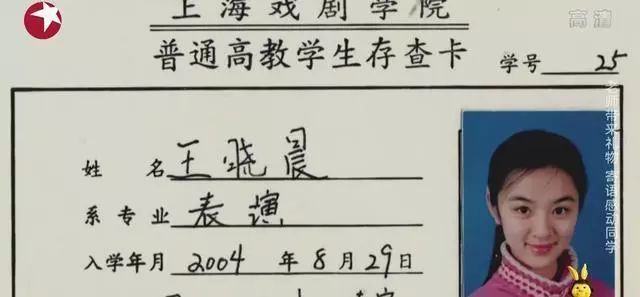 上海戏剧学院
高清
普通高教学生存查卡
学号 25
姓名 王晓晨
系专业 表演
入学年月 2004 年 8 月 29 日
老师带来礼物 寄语感动同学